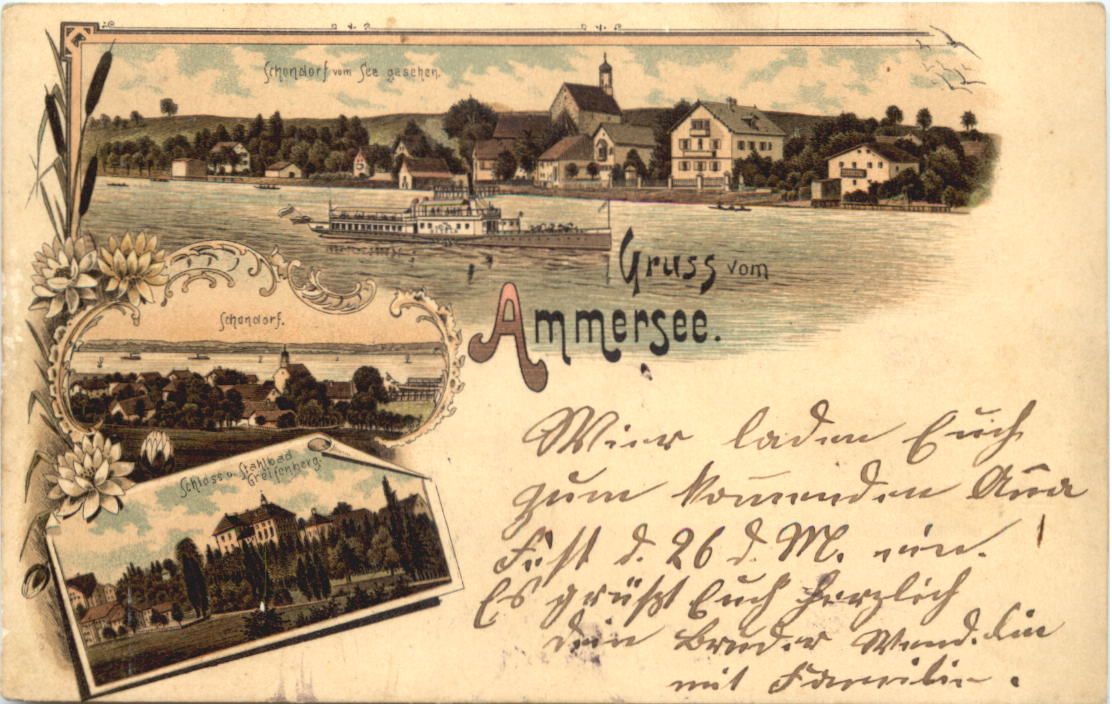 Schondorf vom See gesehen.
Gruss vom
Ammersee.
Schondorf.
Schloss u. Stahlbad
Greifenberg.
Wier laden Euch
zum komenden Ana
Fest d. 26 d. M. ein.
Es grüßt Euch herzlich
dein Bruder Wendelin
mit Familie.